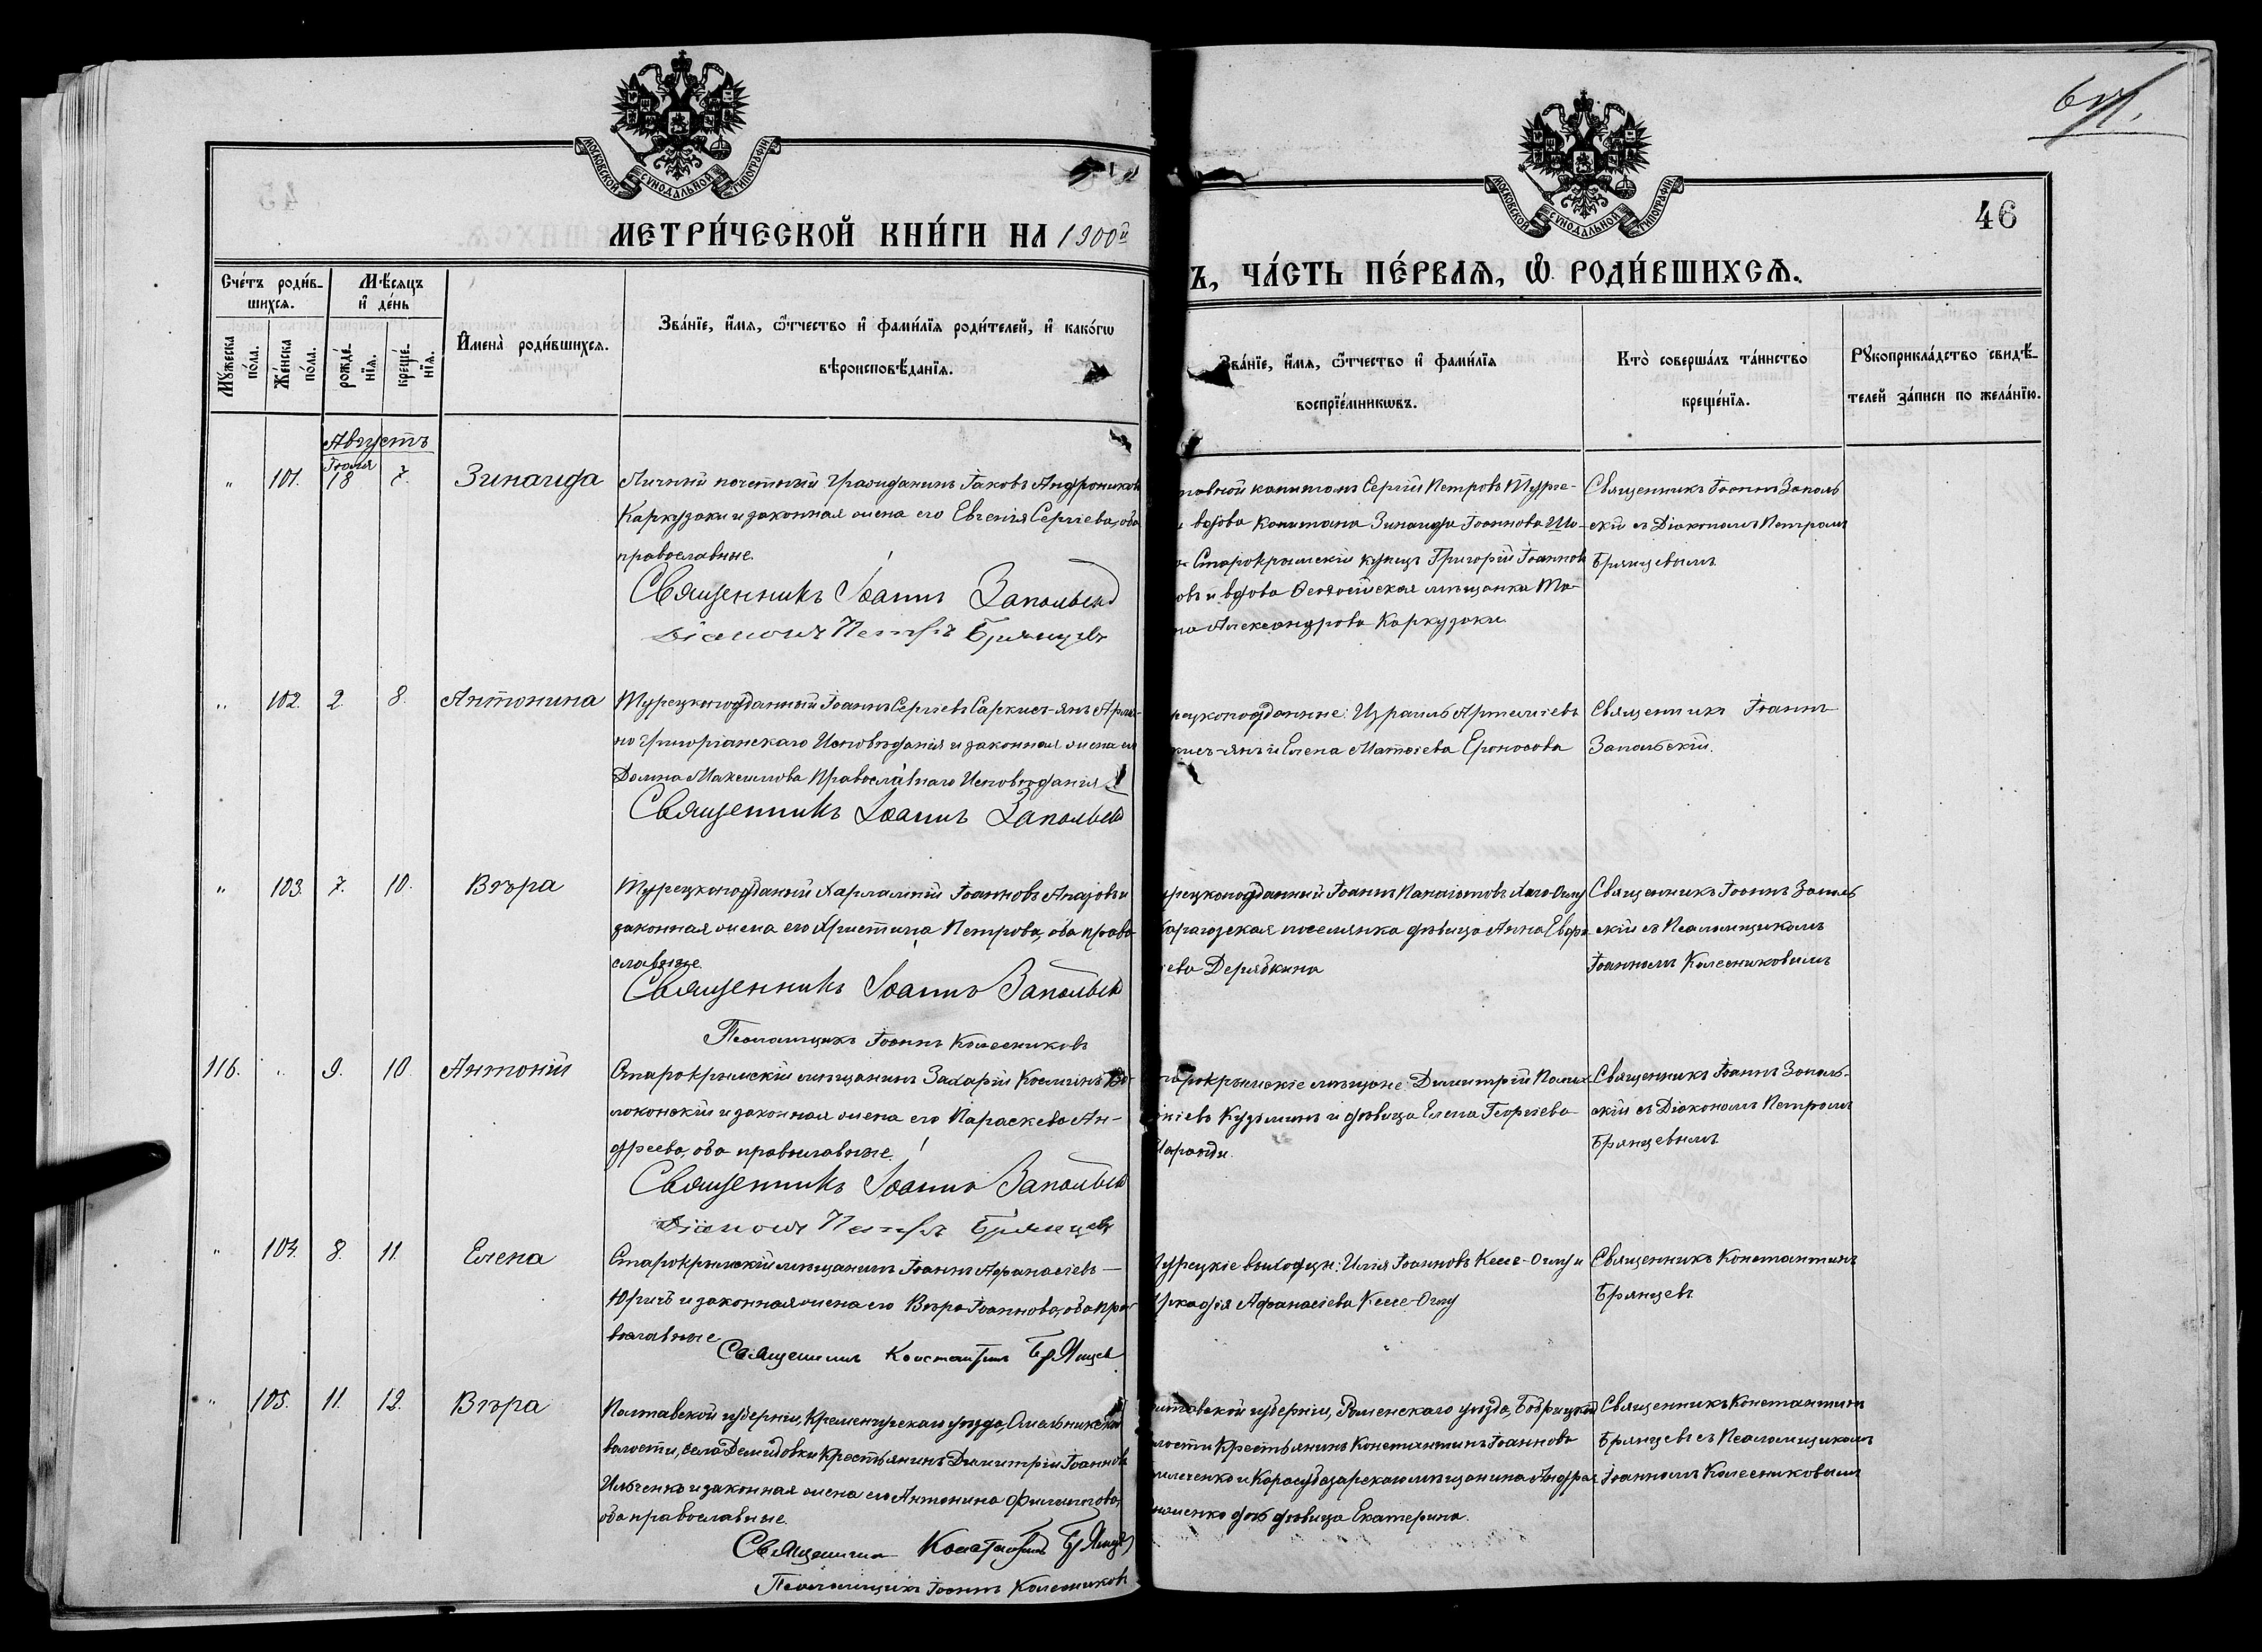 МОСКОВСКОЙ СѴНОДАЛЬНОЙ ТИПОГРАФІИ
МЕТРИ́ЧЕСКОЙ КНИ́ГИ НА 1900й
Сче́тъ роди́в-
шихся.
Мѣ́сяцъ
и де́нь
Му́жеска
по́ла.
Же́нска
по́ла.
рожде́-
нїя.
креще́-
нїя.
Имена̀ роди́вшихся.
Зва́нїе, и́мя, ѻ́тчество и фами́лїя роди́телей, и како́гѡ
вѣроисповѣ́данїя.
Августъ
Іюля
" 101. 18 7. Зинаида
Личный почетный Гражданинъ Іаковъ Андрониковъ
Каркузаки и законная жена его Евгенія Сергіева, оба
православные.
Священникъ Іоаннъ Запольскій
Діаконъ Петръ Брянцевъ
" 102. 2. 8. Антонина
Турецкоподданный Іоаннъ Сергіевъ Саркисъ-янъ Армя-
но Григоріанскаго Исповѣданія и законная жена его
Домна Максимова Православнаго Исповѣданія
Священникъ Іоаннъ Запольскій
" 103. 7. 10. Вѣра
Турецкоподданый Харлампій Іоанновъ и
законная жена его Христина Петрова, оба право
славные.
Священникъ Іоаннъ Запольскій
Псаломщикъ Іоаннъ Колесниковъ
116. " 9. 10. Антоній
Старокрымскій мѣщанинъ Захарій Космінъ
локонскій и законная жена его Параскева Ан-
дреева, оба православные.
Священникъ Іоаннъ Запольскій
Діаконъ Петръ Брянцевъ
" 104. 8. 11. Елена
Старокрымскій мѣщанинъ Іоаннъ Афанасіевъ
Юричъ и законная жена его Вѣра Іоаннова, оба пра-
вославные
Священникъ Константинъ Брянцевъ
" 105. 11. 12. Вѣра
Полтавской губерніи, Кременчугскаго уѣзда, Омельникской
волости, села Демидовки Крестьянинъ Димитрій Іоанновъ
Ильченко и законная жена его Антонина Филиппова,
оба православные.
Священникъ Константинъ Брянцевъ
Псаломщикъ Іоаннъ Колесниковъ
МОСКОВСКОЙ СѴНОДАЛЬНОЙ ТИПОГРАФІИ
46
Ъ, ЧА́СТЬ ПЕ́РВАЯ, Ѡ РОДИ́ВШИХСЯ.
Зва́нїе, и́мя, ѻ́тчество и фами́лїя
воспрїе́мникѡвъ.
Кто̀ соверша́лъ та́инство
креще́нїя.
Рꙋкоприкла́дство свидѣ́-
телей за́писи по жела́нїю.
Сергій Петровъ Турге-
вдова Капитана Зинаида Іоаннова
Старокрымскій купецъ Григорій Іоаннов
овъ и вдова Ѳеодосійская мѣщанка Ма-
на Александрова Каркузаки.
Священникъ Іоаннъ Заполь
скій съ Діакономъ Петромъ
Брянцевымъ
рецкоподданные: Израиль Артеміевъ
кисъ-янъ и Елена Матѳіева
Священникъ Іоаннъ
Запольскій.
урецкоподданный Іоаннъ Панаіотовъ
поселянка дѣвица Анна
ева Дерябкина
Священникъ Іоаннъ Заполь
скій съ Псаломщикомъ
Іоанномъ Колесниковымъ
тарокрымскіе мѣщане: Димитрій
Кузьминъ и дѣвица Елена Георгіева
Священникъ Іоаннъ Заполь-
скій съ Діакономъ Петромъ
Брянцевымъ
урецкіе выходцы: Илія Іоанновъ Кеше-Оглу и
ркадія Афанасіева Кеше-Оглу
Священникъ Константинъ
Брянцевъ
лтавской губерніи, Роменскаго уѣзда,
лости Крестьянинъ Константинъ Іоанновъ
и Карасубазарскаго мѣщанина Андрея
дѣвица Екатерина.
Священникъ Константинъ
Брянцевъ съ Псаломщикомъ
Іоанномъ Колесниковымъ